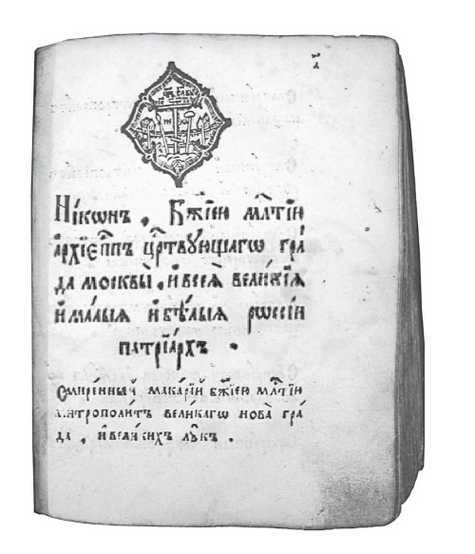 Нікѡнъ, Бж҃їею мл҃тїю
а҆рхїеп҃пъ црⷭ҇твꙋющагѡ гра́
да москвы̀, и҆ всеѧ̀ вели́кїѧ
и҆ ма́лыѧ и҆ бѣ́лыѧ рѡссі́и
патрїа́рхъ.
Смире́нный мака́рїй бж҃їею мл҃тїю
митрополи́тъ вели́кагѡ но́ва гра́
да, и҆ вели́кихъ лꙋ́къ.